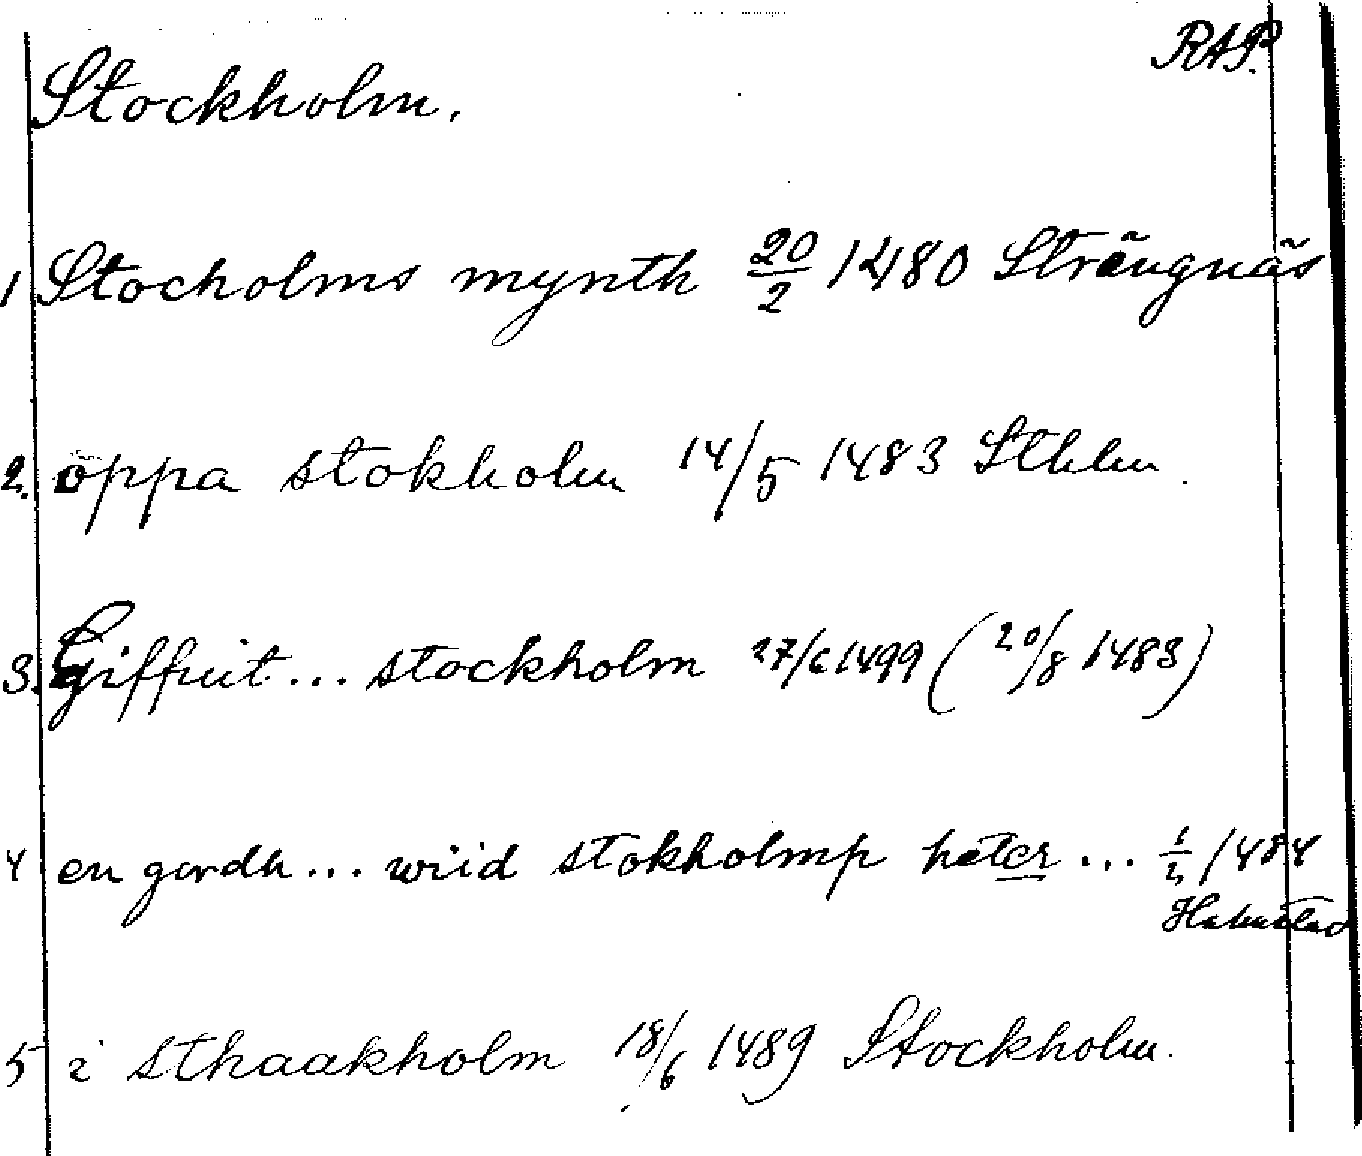 RAP.
Stockholm.
1 Stocholms mynth 20/2 1480 Strängnäs
2. öppa stokholm 14/5 1483 Sthlm
3. Giffuit... stockholm 27/6 1499 (20/8 1483)
4 en gardh... wiid stokholmp heter... 1484
5 i sthaakholm 18/6 1489 Stockholm.